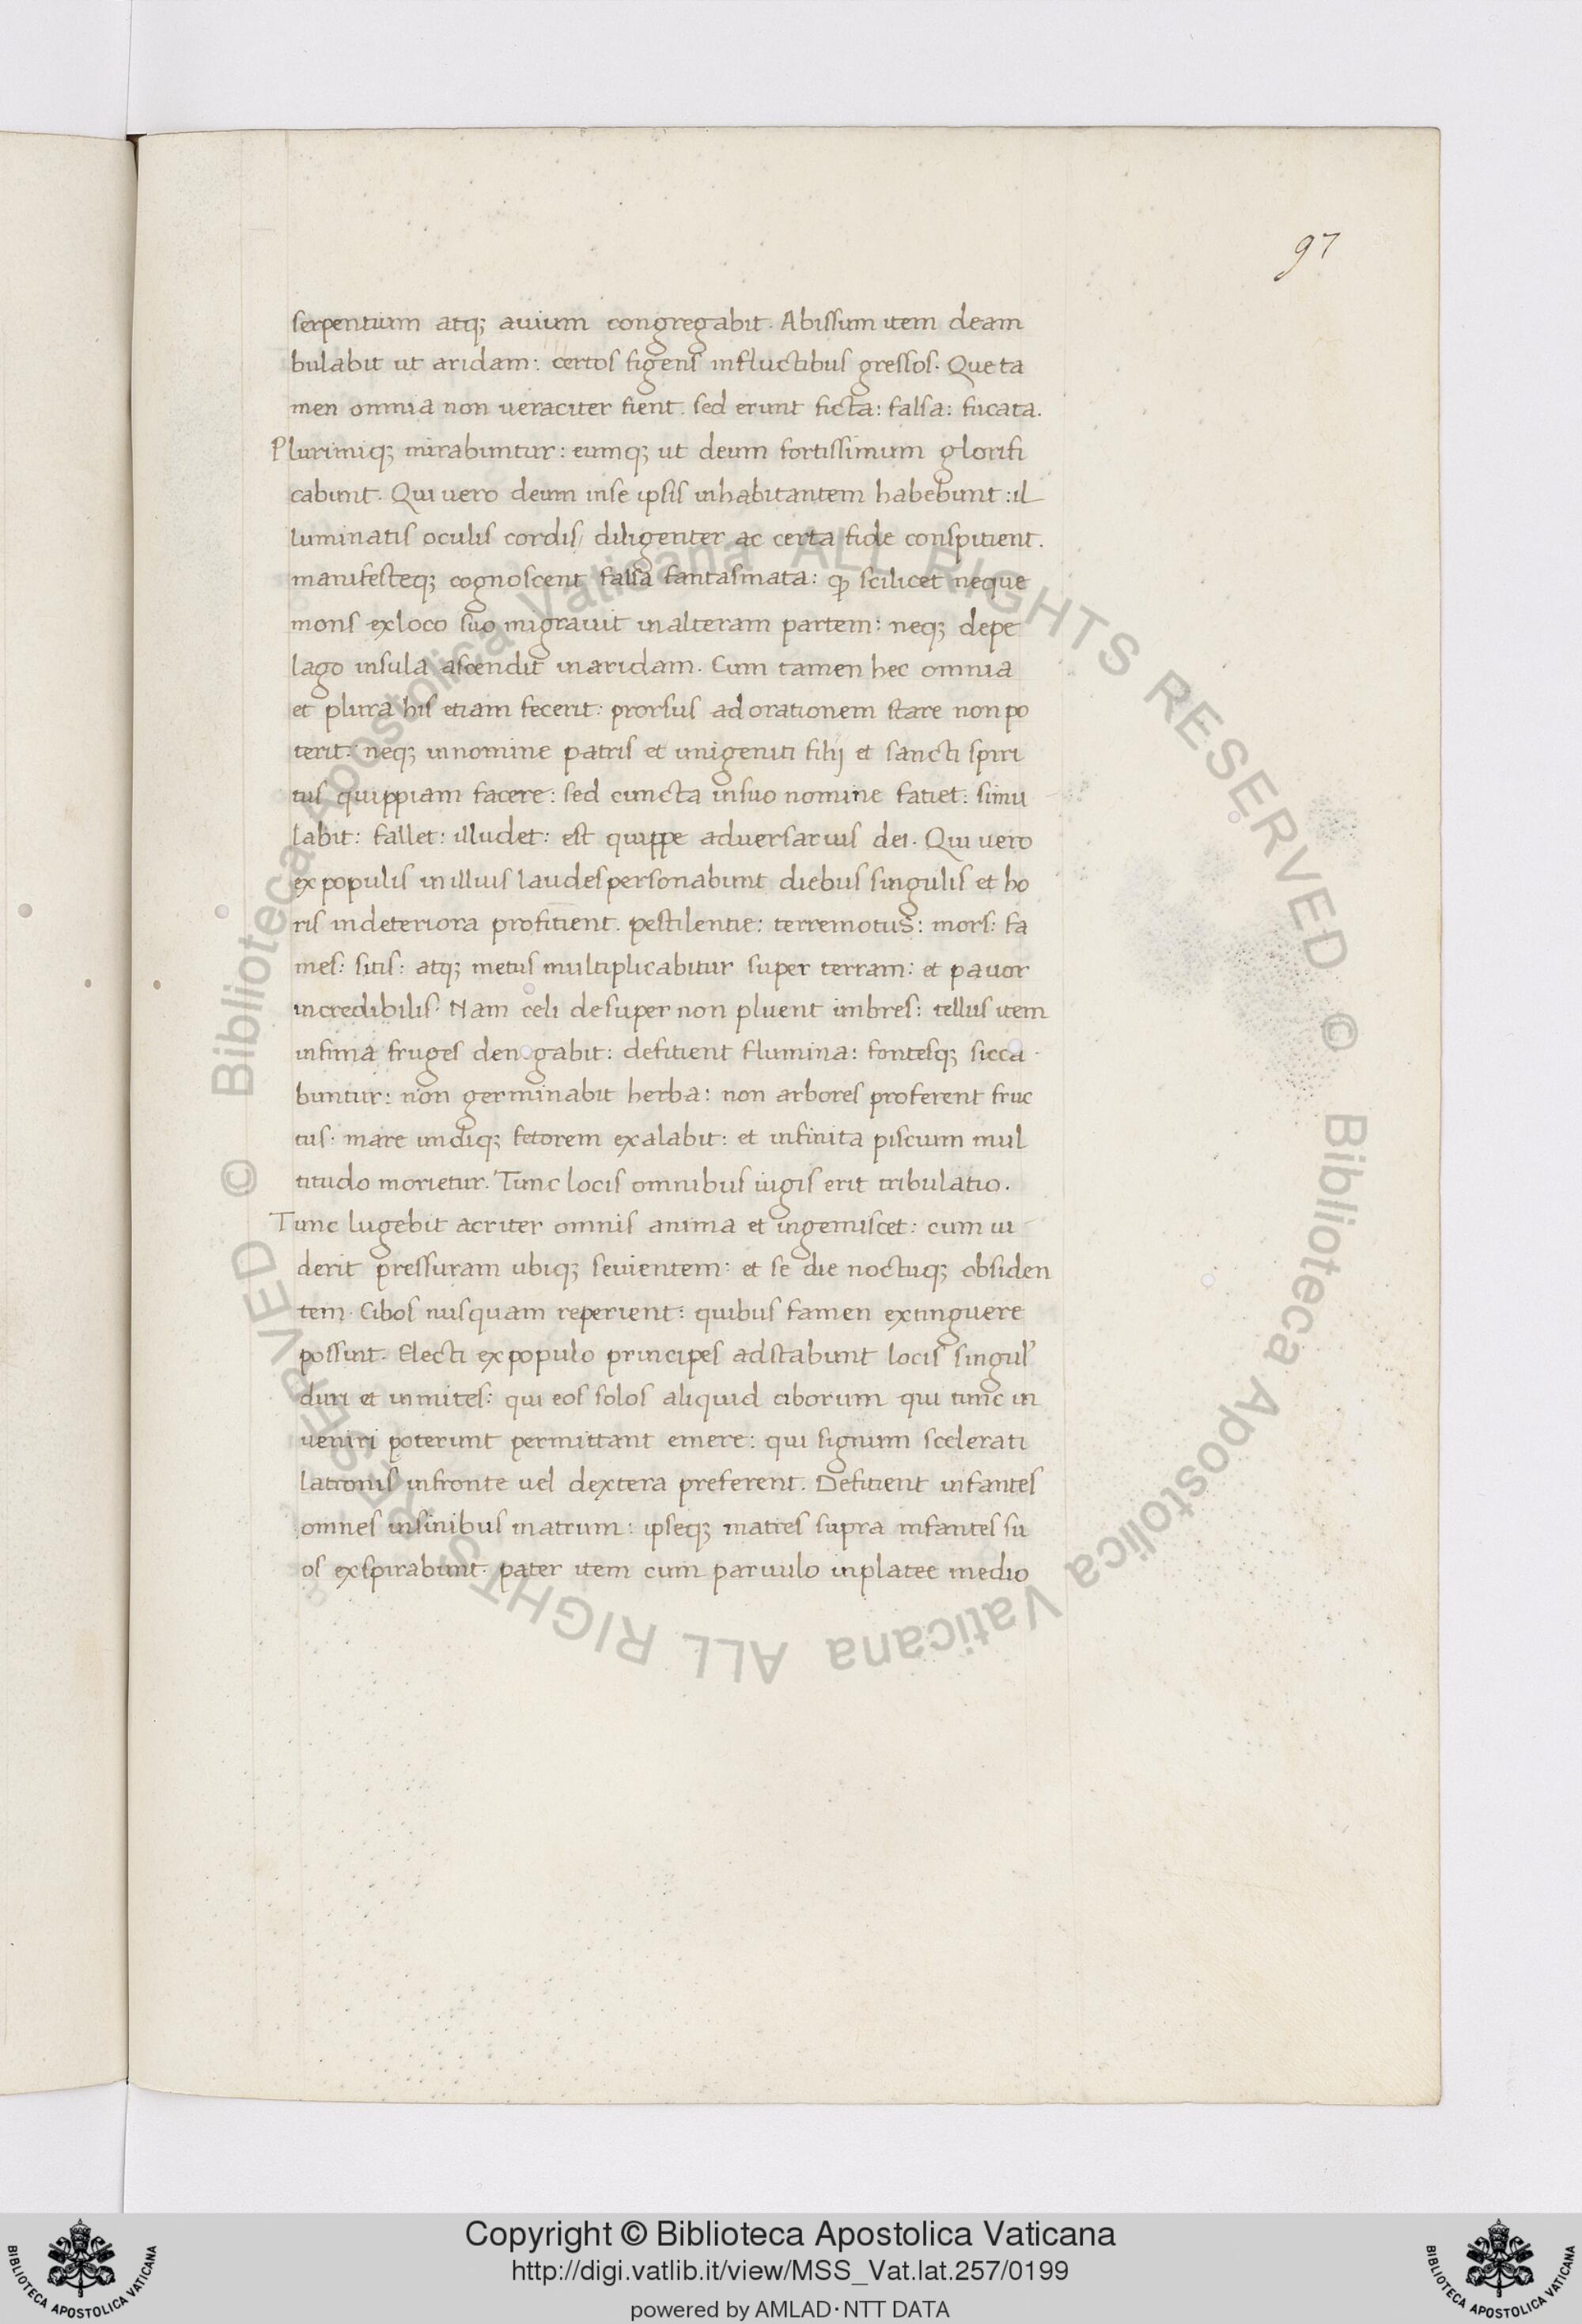 97
serpentium atq; auium congregabit. Abissum item deam
bulabit ut aridam: certos figens influctibus gressos. Que ta
men omnia non ueraciter fient. sed erunt ficta: falsa: fucata.
Plurimiq; mirabuntur: eumq; ut deum fortissimum glorifi
cabunt. Qui uero deum inse ipsis inhabitantem habebunt: il
luminatis oculis cordis/ diligenter ac certa fide conspitient.
manifesteq; cognoscent falsa fantasmata: ꝙ scilicet neque
mons exloco suo migrauit inalteram partem: neq; depe
lago insula ascendit inaridam. Cum tamen hec omnia
et plura his etiam fecerit: prorsus ad orationem stare non po
terit: neq; innomine patris et unigeniti filij et sancti spiri
tus quippiam facere: sed cuncta insuo nomine fatiet: simu
labit: fallet: illudet: est quippe aduersarius dei. Qui uero
ex populis in illius laudes personabunt diebus singulis et ho
ris indeteriora profitient. pestilentie: terremotus: mors: fa
mes: sitis: atq; metus multiplicabitur super terram: et pauor
incredibilis. Nam celi desuper non pluent imbres: tellus item
infima fruges denegabit: defitient flumina: fontesq; sicca
buntur: non germinabit herba: non arbores proferent fruc
tus: mare undiq; fetorem exalabit: et infinita piscium mul
titudo morietur. Tunc locis omnibus iugis erit tribulatio.
Tunc lugebit acriter omnis anima et ingemiscet: cum ui
derit pressuram ubiq; seuientem: et se die noctuq; obsiden
tem. Cibos nusquam reperient: quibus famen extinguere
possint. Electi ex populo principes adstabunt locis singul'
duri et inmites: qui eos solos aliquid ciborum qui tunc in
ueniri poterunt permittant emere: qui signum scelerati
latronis infronte uel dextera preferent. Defitient infantes
omnes insinibus matrum: ipseq; matres supra infantes su
os exspirabunt. pater item cum paruulo inplatee medio
© Biblioteca Apostolica Vaticana ALL RIGHTS RESERVED © Biblioteca Apostolica Vaticana ALL RIGHTS RESERVED
BIBLIOTECA APOSTOLICA VATICANA
Copyright © Biblioteca Apostolica Vaticana
http://digi.vatlib.it/view/MSS_Vat.lat.257/0199
powered by AMLAD·NTT DATA
BIBLIOTECA APOSTOLICA VATICANA